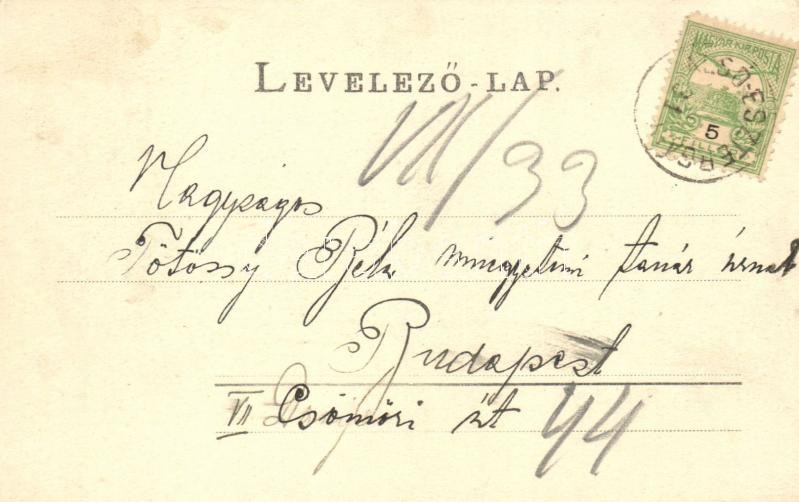 LEVELEZŐ-LAP.
MAGYAR KIR. POSTA
5
VII/33
Nagyságos
Tötössy Béla műegyetemi tanár úrnak
Budapest
VII Csömöri út 44